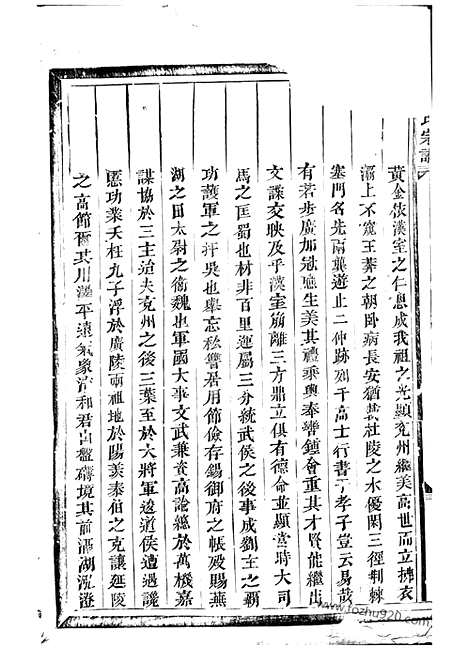 氏宗譜
黃金依漢室之仁恩成我祖之光顯兗州繼美高世而立拂衣
灞上不窺王莽之朝臥病長安猶哉杜陵之水優閑三徑荆棘
塞門名先南龔遊止二仲跡列千高士行書于孝子豈云易哉
有若步廣加冠應生美其禮乘輿奉轡鍾會重其才賢能繼出
文諜交映及乎漢室崩離三方鼎立俱有德命並顯當時大司
馬之匡蜀也材非百里迺屬三分統武侯之後事成劉主之霸
功護軍之扞吳也舉忘私讐居用節儉存錫御府之帳被賜燕
湖之田太尉之衛魏也軍國大事文武兼資高論總於萬機嘉
謀協於三主洎夫兗州之後三葉至於大將軍逡遒侯遭過譏
慝功業夭枉九子浮於廣陵兩祖地於陽羨泰伯之克讓延陵
之高節爾其川澤平遠氣象淸和君山盤礴境其前滆湖泓澄
www.tozhu920.com